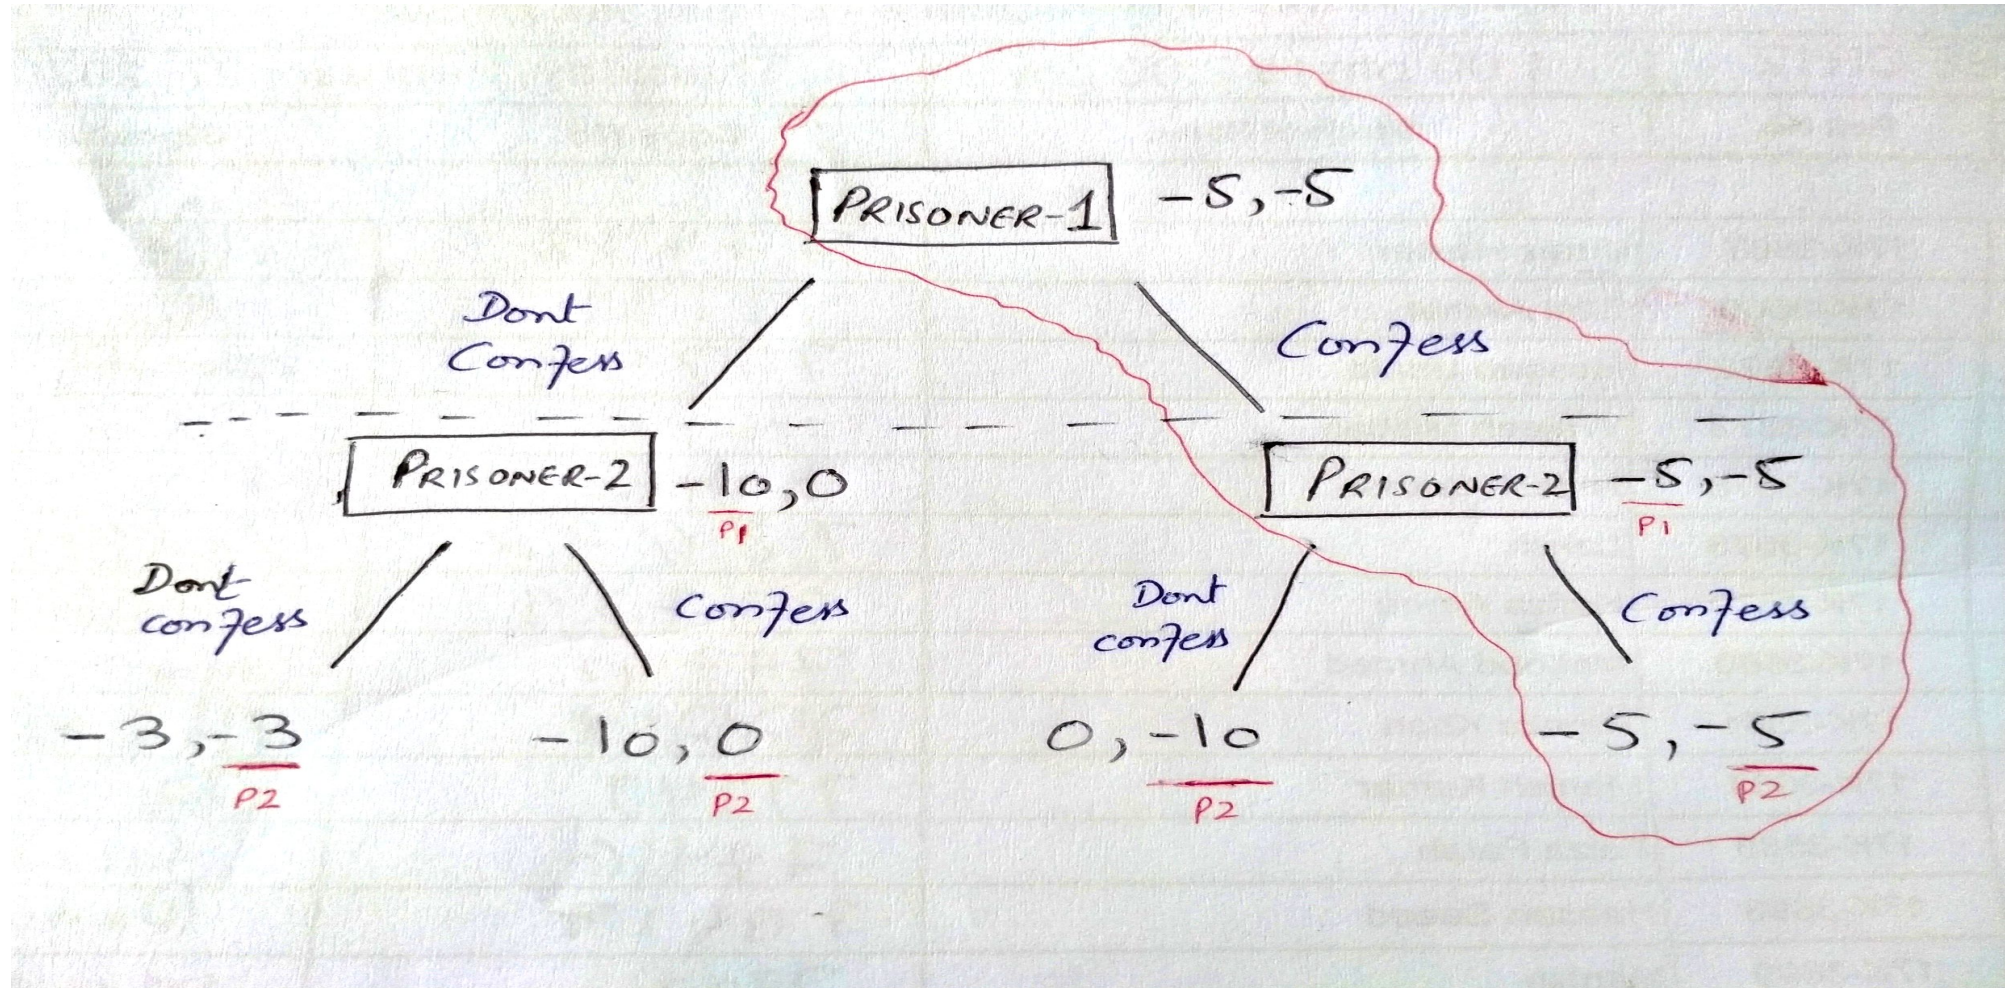 PRISONER-1 -5,-5
Dont
Confess
Confess
PRISONER-2 -10,0
P1
PRISONER-2 -5,-5
P1
Dont
confess
Confess
Dont
confess
Confess
-3,-3
P2
-10,0
P2
0,-10
P2
-5,-5
P2